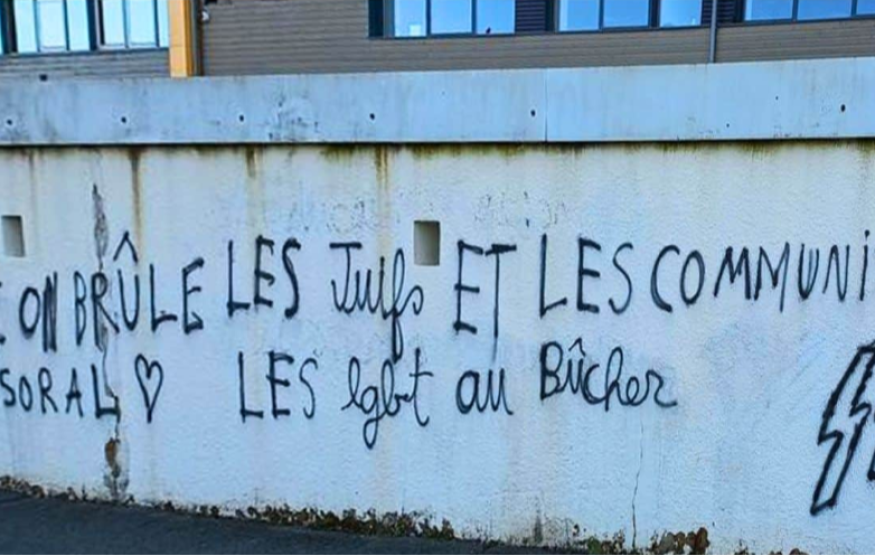 ON BRÛLE LES Juifs ET LES COMMUNI
SORAL ♡ LES lgbt au Bûcher